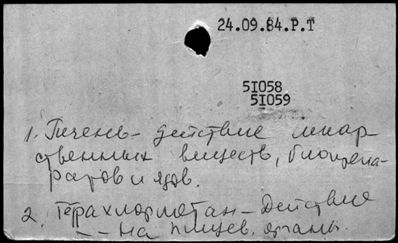 24.09.84.Р.Т
51058
51059
1. Печень - действие лекар-
ственных веществ, биопрепа-
ратов и ядов.
2. Тетрахлорметан - Действие
-- на пищев. органы.